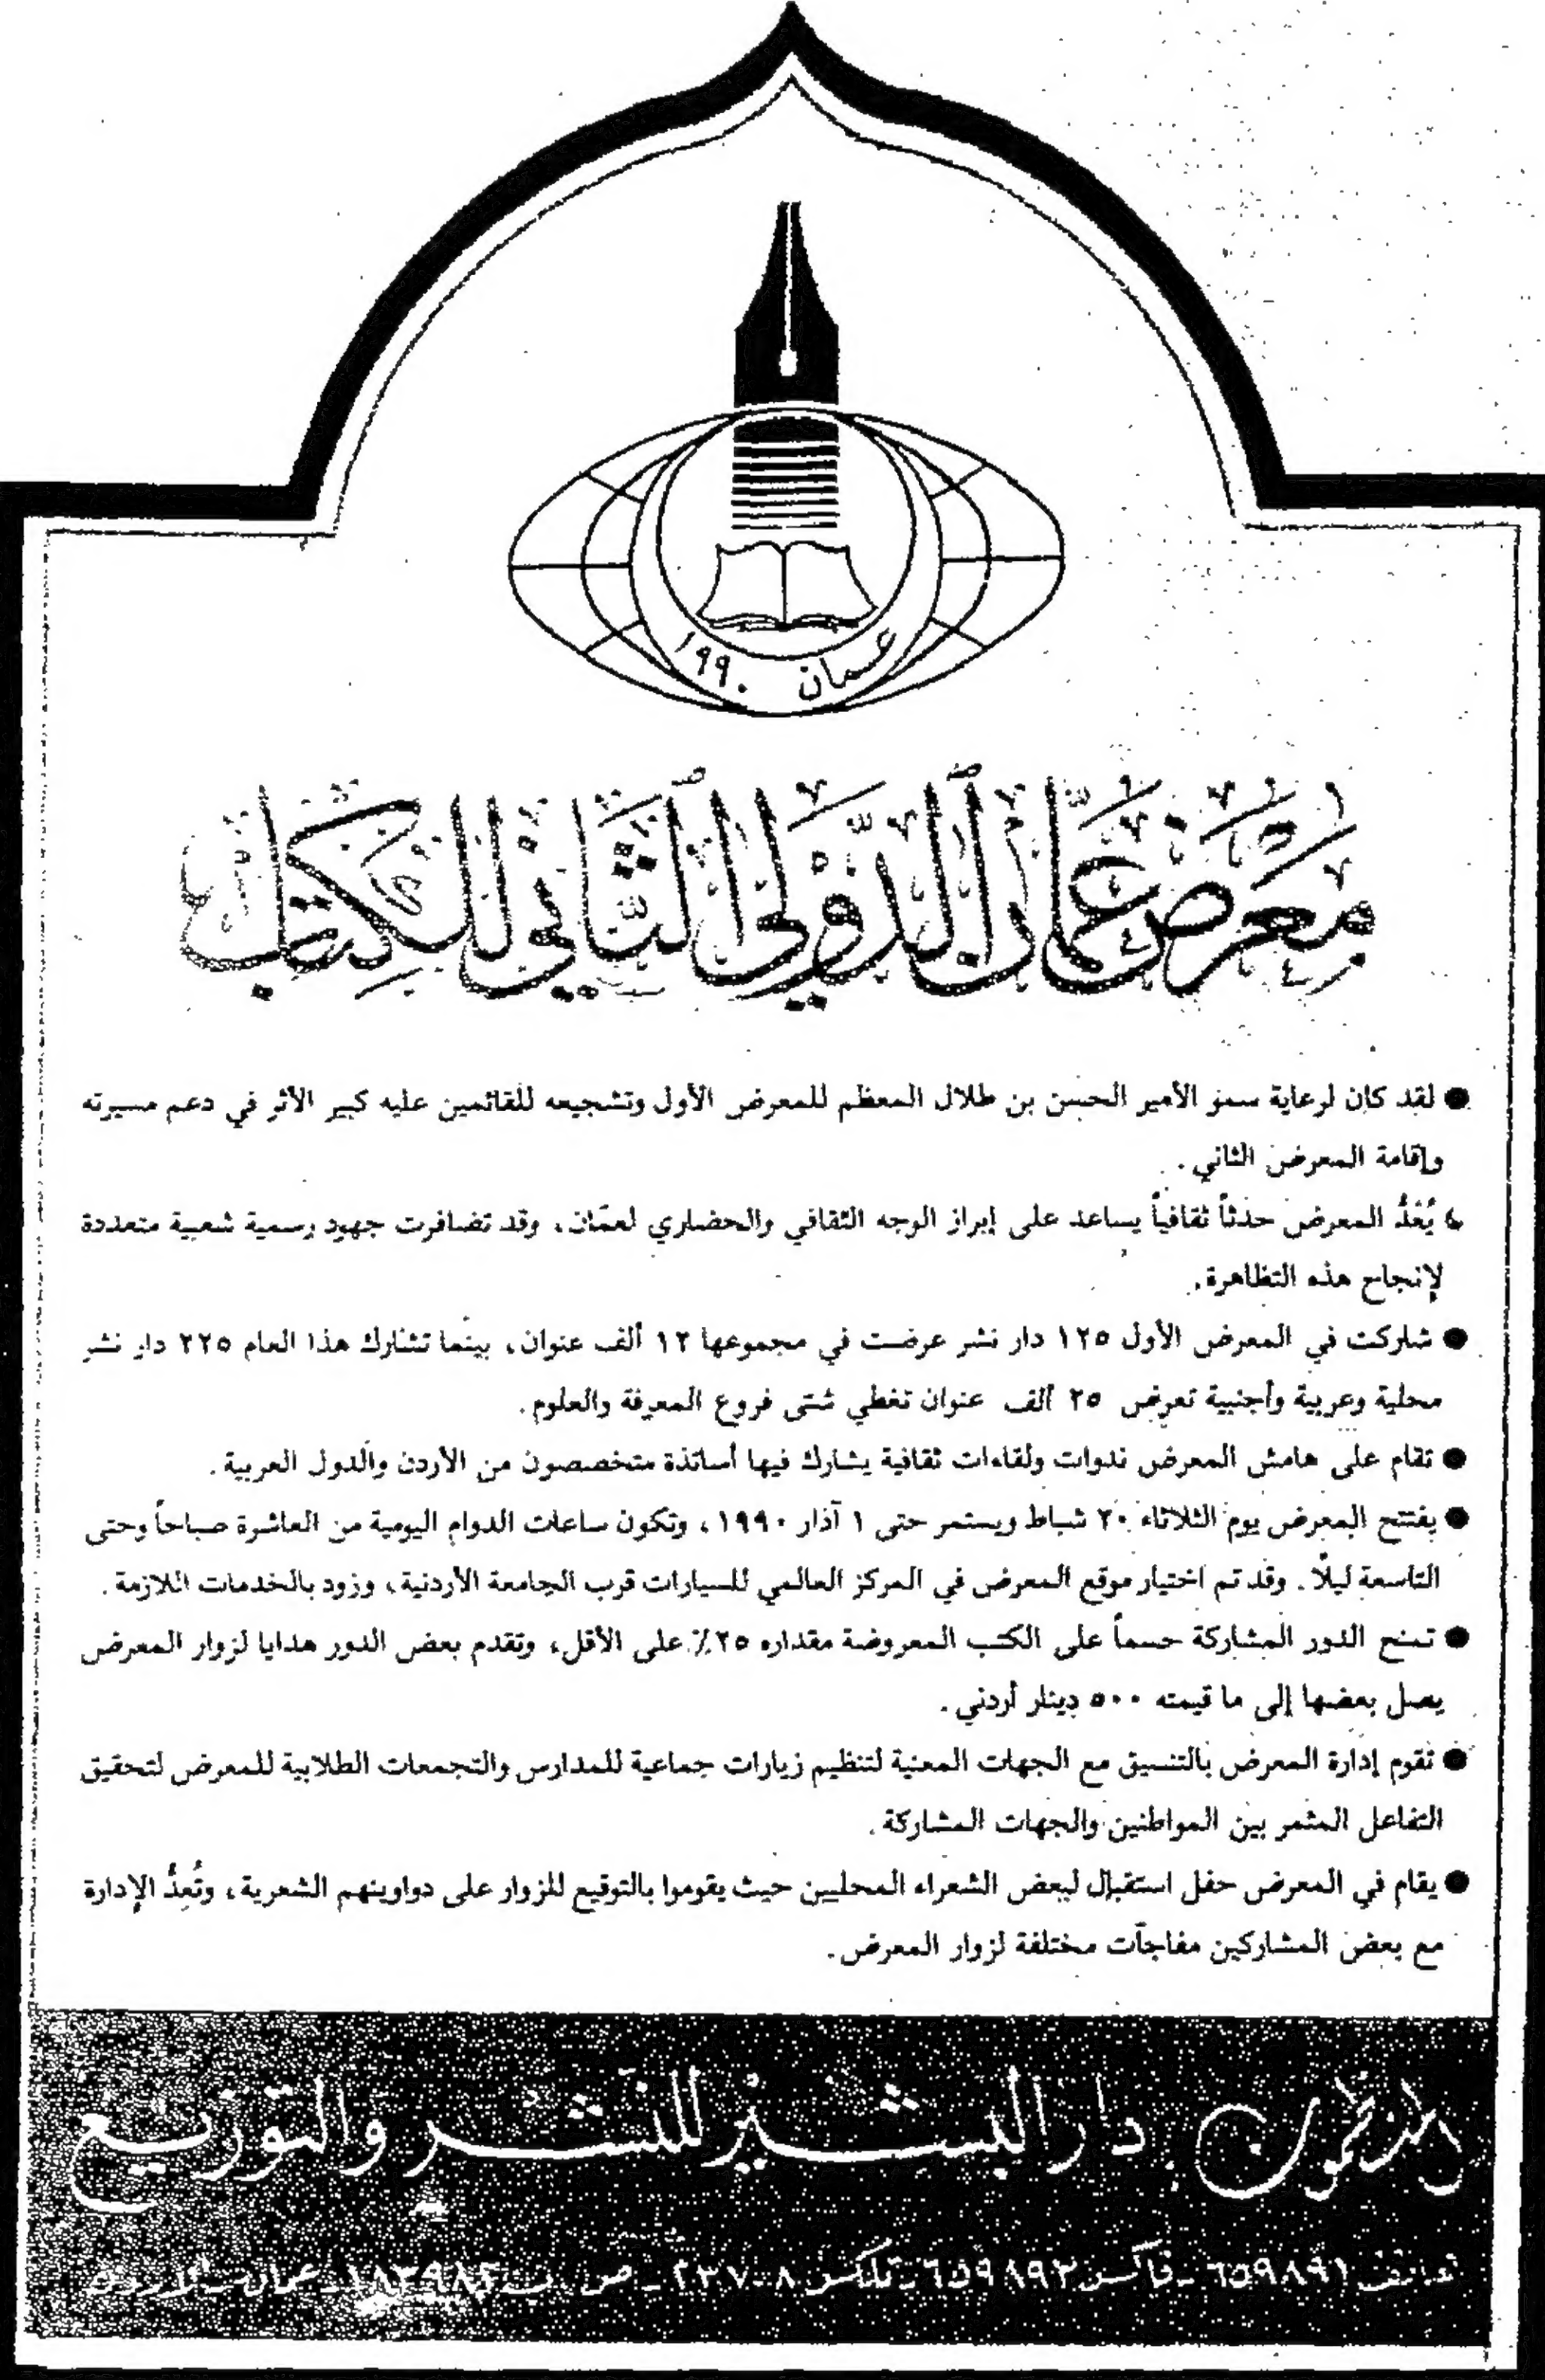 عمان ١٩٩٠
معرض عمان الدولي الثاني للكتاب
● لقد كان لرعاية سمو الأمير الحسن بن طلال المعظم للمعرض الأول وتشجيعه للقائمين عليه كبير الأثر في دعم مسيرته
وإقامة المعرض الثاني .
● يُعَدُّ المعرض حدثاً ثقافياً يساعد على إبراز الوجه الثقافي والحضاري لعمّان، وقد تضافرت جهود رسمية شعبية متعددة
لإنجاح هذه التظاهرة.
● شاركت في المعرض الأول ١٢٥ دار نشر عرضت في مجموعها ١٢ ألف عنوان، بينما تشارك هذا العام ٢٢٥ دار نشر
محلية وعربية وأجنبية تعرض ٢٥ ألف عنوان تغطي شتى فروع المعرفة والعلوم.
● تقام على هامش المعرض ندوات ولقاءات ثقافية يشارك فيها أساتذة متخصصون من الأردن والدول العربية .
● يفتتح المعرض يوم الثلاثاء ٢٠ شباط ويستمر حتى ١ آذار ١٩٩٠، وتكون ساعات الدوام اليومية من العاشرة صباحاً وحتى
التاسعة ليلاً . وقد تم اختيار موقع المعرض في المركز العالمي للسيارات قرب الجامعة الأردنية، وزود بالخدمات اللازمة .
● تمنح الدور المشاركة حسماً على الكتب المعروضة مقداره ٢٥٪ على الأقل، وتقدم بعض الدور هدايا لزوار المعرض
يصل بعضها إلى ما قيمته ٥٠٠ دينار أردني .
● تقوم إدارة المعرض بالتنسيق مع الجهات المعنية لتنظيم زيارات جماعية للمدارس والتجمعات الطلابية للمعرض لتحقيق
التفاعل المثمر بين المواطنين والجهات المشاركة .
● يقام في المعرض حفل استقبال لبعض الشعراء المحليين حيث يقوموا بالتوقيع للزوار على دواوينهم الشعرية، وتُعِدُّ الإدارة
مع بعض المشاركين مفاجآت مختلفة لزوار المعرض.
المنظمون: دار البشير للنشر والتوزيع
هاتف ٦٥٩٨٩١ - فاكس ٦٥٩٨٩٢ - تلكس ٢٣٧٠٨ - ص. ب ١٨٢٩٨٢ - عمان - الأردن